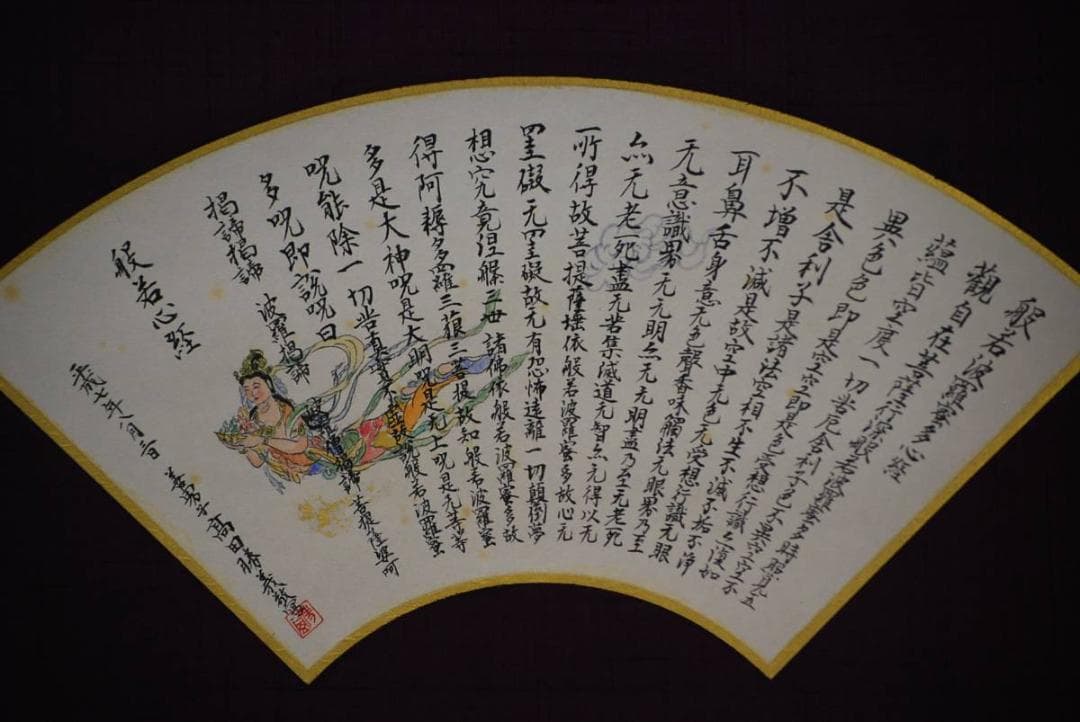 般若波羅蜜多心経
觀自在菩薩行深般若波羅蜜多時照見五
蘊皆空度一切苦厄舍利子色不異空空不
異色色即是空空即是色受想行識亦復如
是舍利子是諸法空相不生不滅不垢不浄
不增不減是故空中无色无受想行識无眼
耳鼻舌身意无色聲香味觸法无眼界乃至
无意識界无无明亦无无明盡乃至无老死
亦无老死盡无苦集滅道无智亦无得以无
所得故菩提薩埵依般若波羅蜜多故心无
罣礙无罣礙故无有恐怖遠離一切顛倒夢
想究竟涅槃三世諸佛依般若波羅蜜多故
得阿耨多羅三藐三菩提故知般若波羅蜜
多是大神呪是大明呪是无上呪是无等等
呪能除一切苦真實不虚故説般若波羅蜜
多呪即説呪曰
揭諦揭諦 波羅揭諦 波羅僧揭諦 菩提薩婆呵
般若心経
平成七年八月 高田勝義敬寫